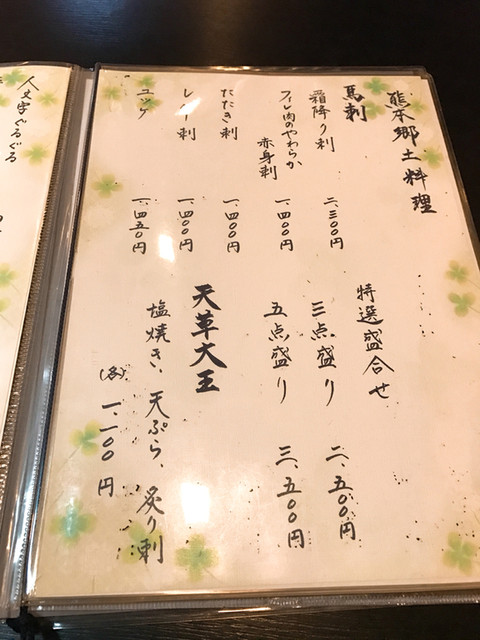 熊本郷土料理
馬刺
霜降り刺 二、三〇〇円
フィレ肉のやわらか
赤身刺 一、四〇〇円
たたき刺 一、四〇〇円
レバー刺 一、四〇〇円
ユッケ 一、四五〇円
特選盛合せ
三点盛り 二、五〇〇円
五点盛り 三、五〇〇円
天草大王
塩焼き、天ぷら、炙り刺
(各) 一、一〇〇円
人文字ぐるぐる